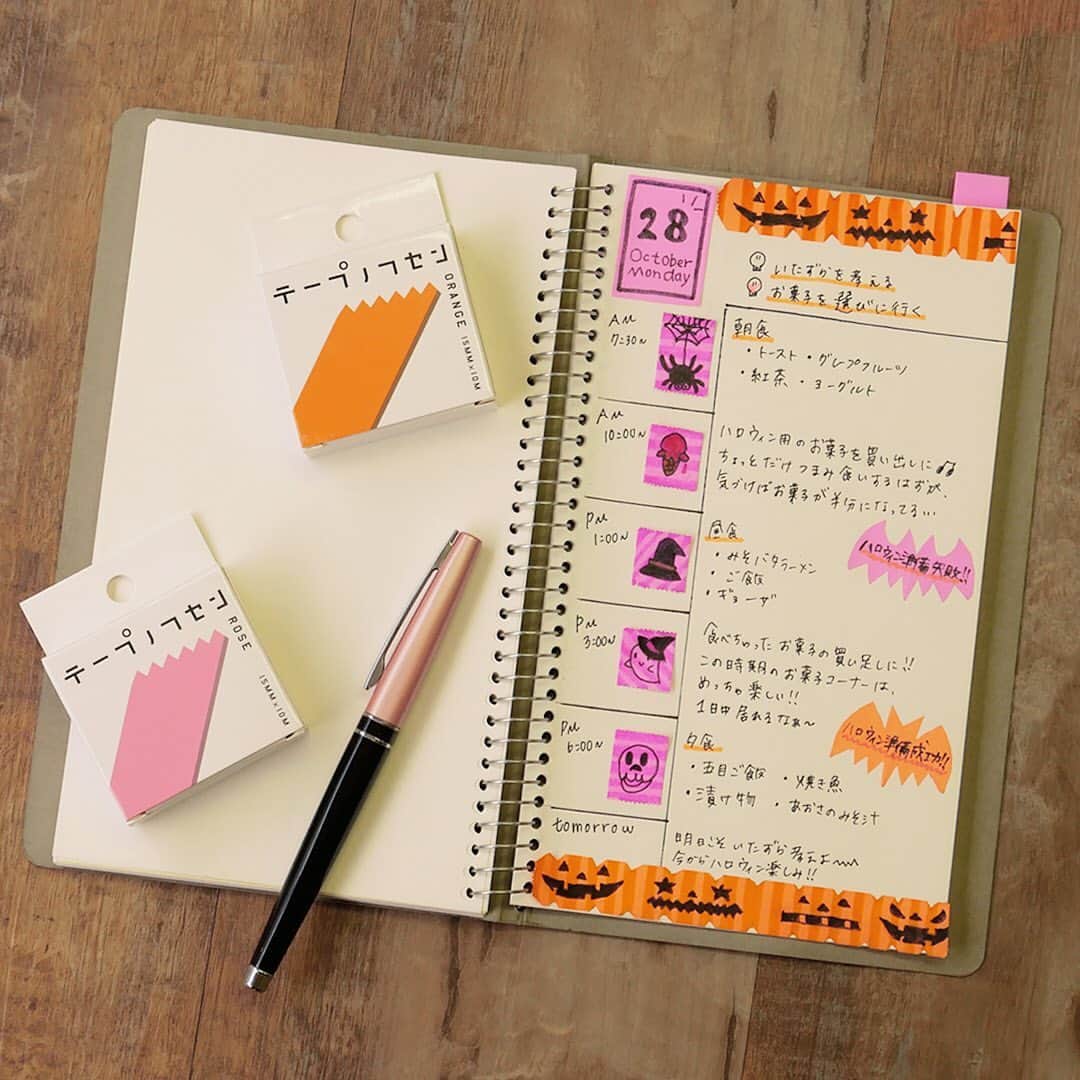 テープノフセン
ORANGE 15MM×10M
テープノフセン
ROSE
15MM×10M
28
October
Monday
いたずらを考える
お菓子を選びに行く
AM
7:30~
朝食
・トースト・グレープフルーツ
・紅茶・ヨーグルト
AM
10:00~
ハロウィン用のお菓子を買い出しに♫
ちょっとだけつまみ食いするはずが、
気づけばお菓子が半分になってる…
PM
1:00~
昼食
・みそバタラーメン
・ご飯
・ギョーザ
ハロウィン準備失敗!!
PM
3:00~
食べちゃったお菓子の買い足しに!!
この時期のお菓子コーナーは、
めっちゃ楽しい!!
1日中居れるなぁ~
ハロウィン準備成功!!
PM
6:00~
夕食
・五目ご飯 ・焼き魚
・漬け物 ・あおさのみそ汁
tomorrow
明日こそいたずら考えよ~
今からハロウィン楽しみ!!